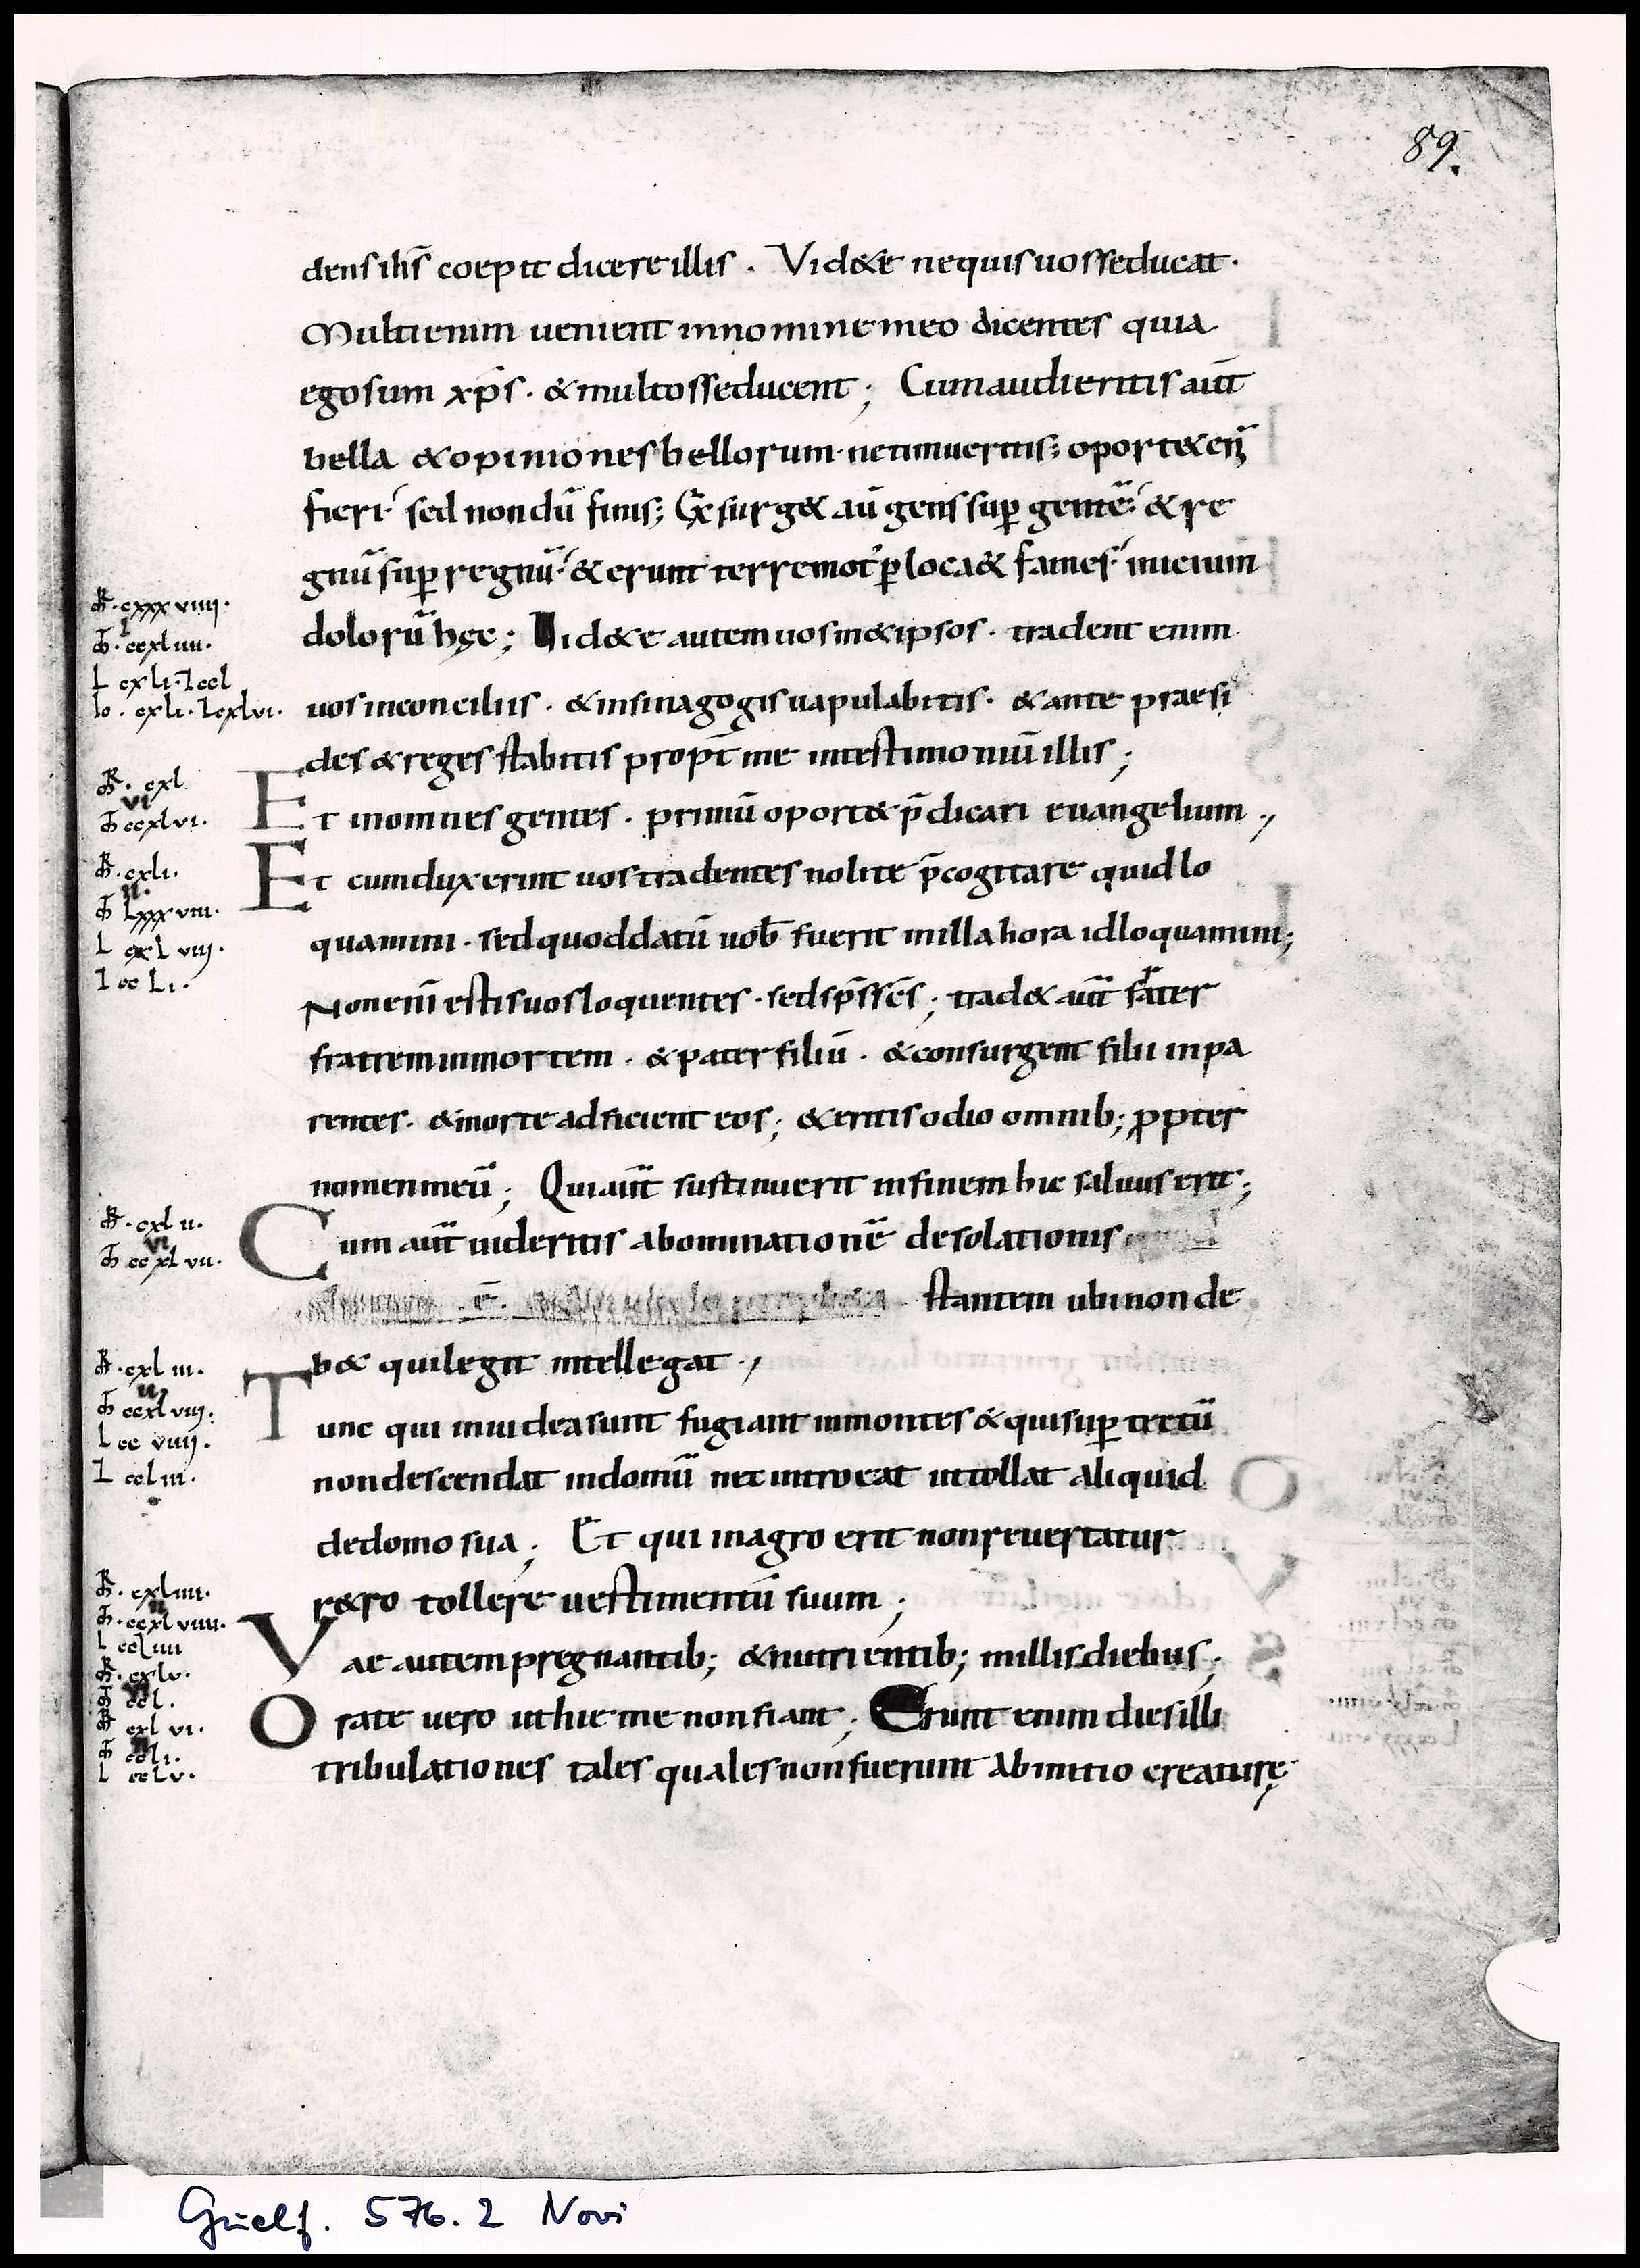 89.
dens ihs̄ coepit dicere illis . Vid&e ne quis uos seducat .
Multi enim uenient in nomine meo dicentes quia
ego sum xp̄s . & multos seducent ; Cum audieritis aut̄
bella & opiniones bellorum . ne timueritis ; oport& eni̅
fieri sed nondū finis ; Exsurg& aū gens sup̱ gentē & re
gnū sup̱ regnū & erunt terremot' p̱ loca & fames initium
dolorū hęc ; Uid&e autem uosm&ipsos . tradent enim
uos in conciliis . & in sinagogis uapulabitis . & ante praesi
des & reges stabitis propt̄ me in testimoniū illis ;
Et in omnes gentes . primū oport& p̄dicari euangelium .,
Et cum duxerint uos tradentes nolite p̄cogitare quid lo
quamini . sed quod datū uob̄ fuerit in illa hora id loquamini ;
Non eni̅ estis uos loquentes . sed sp̄s sc̄s ; trad& aut̄ frater
fratrem in mortem . & pater filiū . & consurgent filii in pa
rentes . & morte adficient eos ; & eritis odio omnib; propter
nomen meū ; Qui aut̄ sustinuerit in finem hic saluus erit ;
Cum aut̄ uideritis abominationē desolationis
ē . stantem ubi non de
b& qui legit intellegat .,
Tunc qui in iudea sunt fugiant in montes & qui sup̱ tectū
non descendat in domū nec introeat ut tollat aliquid
de domo sua ; Et qui in agro erit non reuertatur
r&ro tollere uestimentū suum ;
Vae autem pregnantib; & nutrientib; in illis diebus ;
Orate uero ut hieme non fiant ; Erunt enim dies illi
tribulationes tales quales non fuerunt ab initio creaturę
R . cxxxviiii .
I
M . ccxliiii .
L cxli . 7 ccl
Io . cxli . 7 cxlvi .
R . cxl
VI
M ccxlvi .
R . cxli .
II .
M Lxxxviii .
L cxlviij .
7 cc Li .
R . cxl ii .
VI
M ccxl vii .
R . cxl iii .
II
M ccxl viij .
L cc viiij .
7 ccliii .
R . cxliiii .
II
M . ccxl viiii .
L ccliiii
R . cxlv .
VI
M ccl .
R cxl vi .
II
M ccli .
L cclv .
Guelf. 576.2 Novi